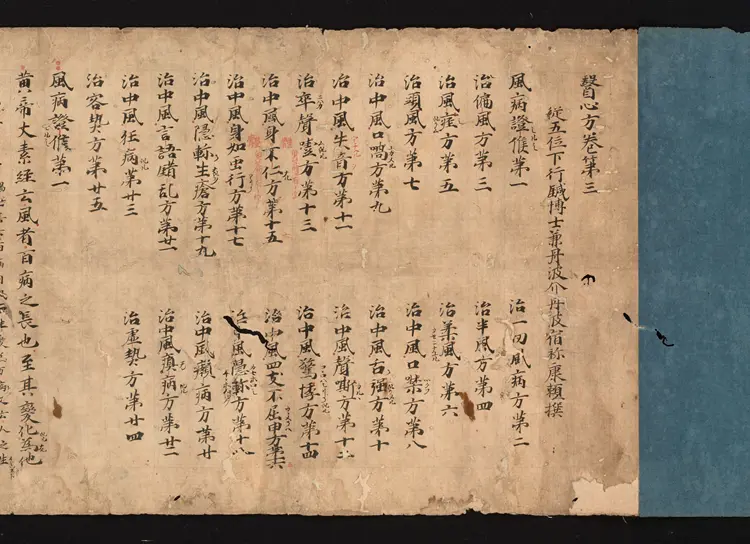 醫心方卷第三
從五位下行鍼博士兼丹波介丹波宿祢康頼撰
風病證候第一 治一切風病方第二
治偏風方第三 治半風方第四
治風痙方第五 治柔風方第六
治頭風方第七 治中風口噤方第八
治中風口喎方第九 治中風舌強方第十
治中風失音方第十一 治中風聲嘶方第十二
治卒聲噎方第十三 治中風驚悸方第十四
治中風身不仁方第十五 治中風四支不屈申方第十六
治中風身如虫行方第十七 治中風隠軫方第十八
治中風隠軫生瘡方第十九 治中風癩病方第廿
治中風言語錯乱方第廿一 治中風癲病方第廿二
治中風狂病第廿三 治虚熱方第廿四
治客熱方第廿五
風病證候第一
黄帝大素経云風者百病之長也至其變化為他